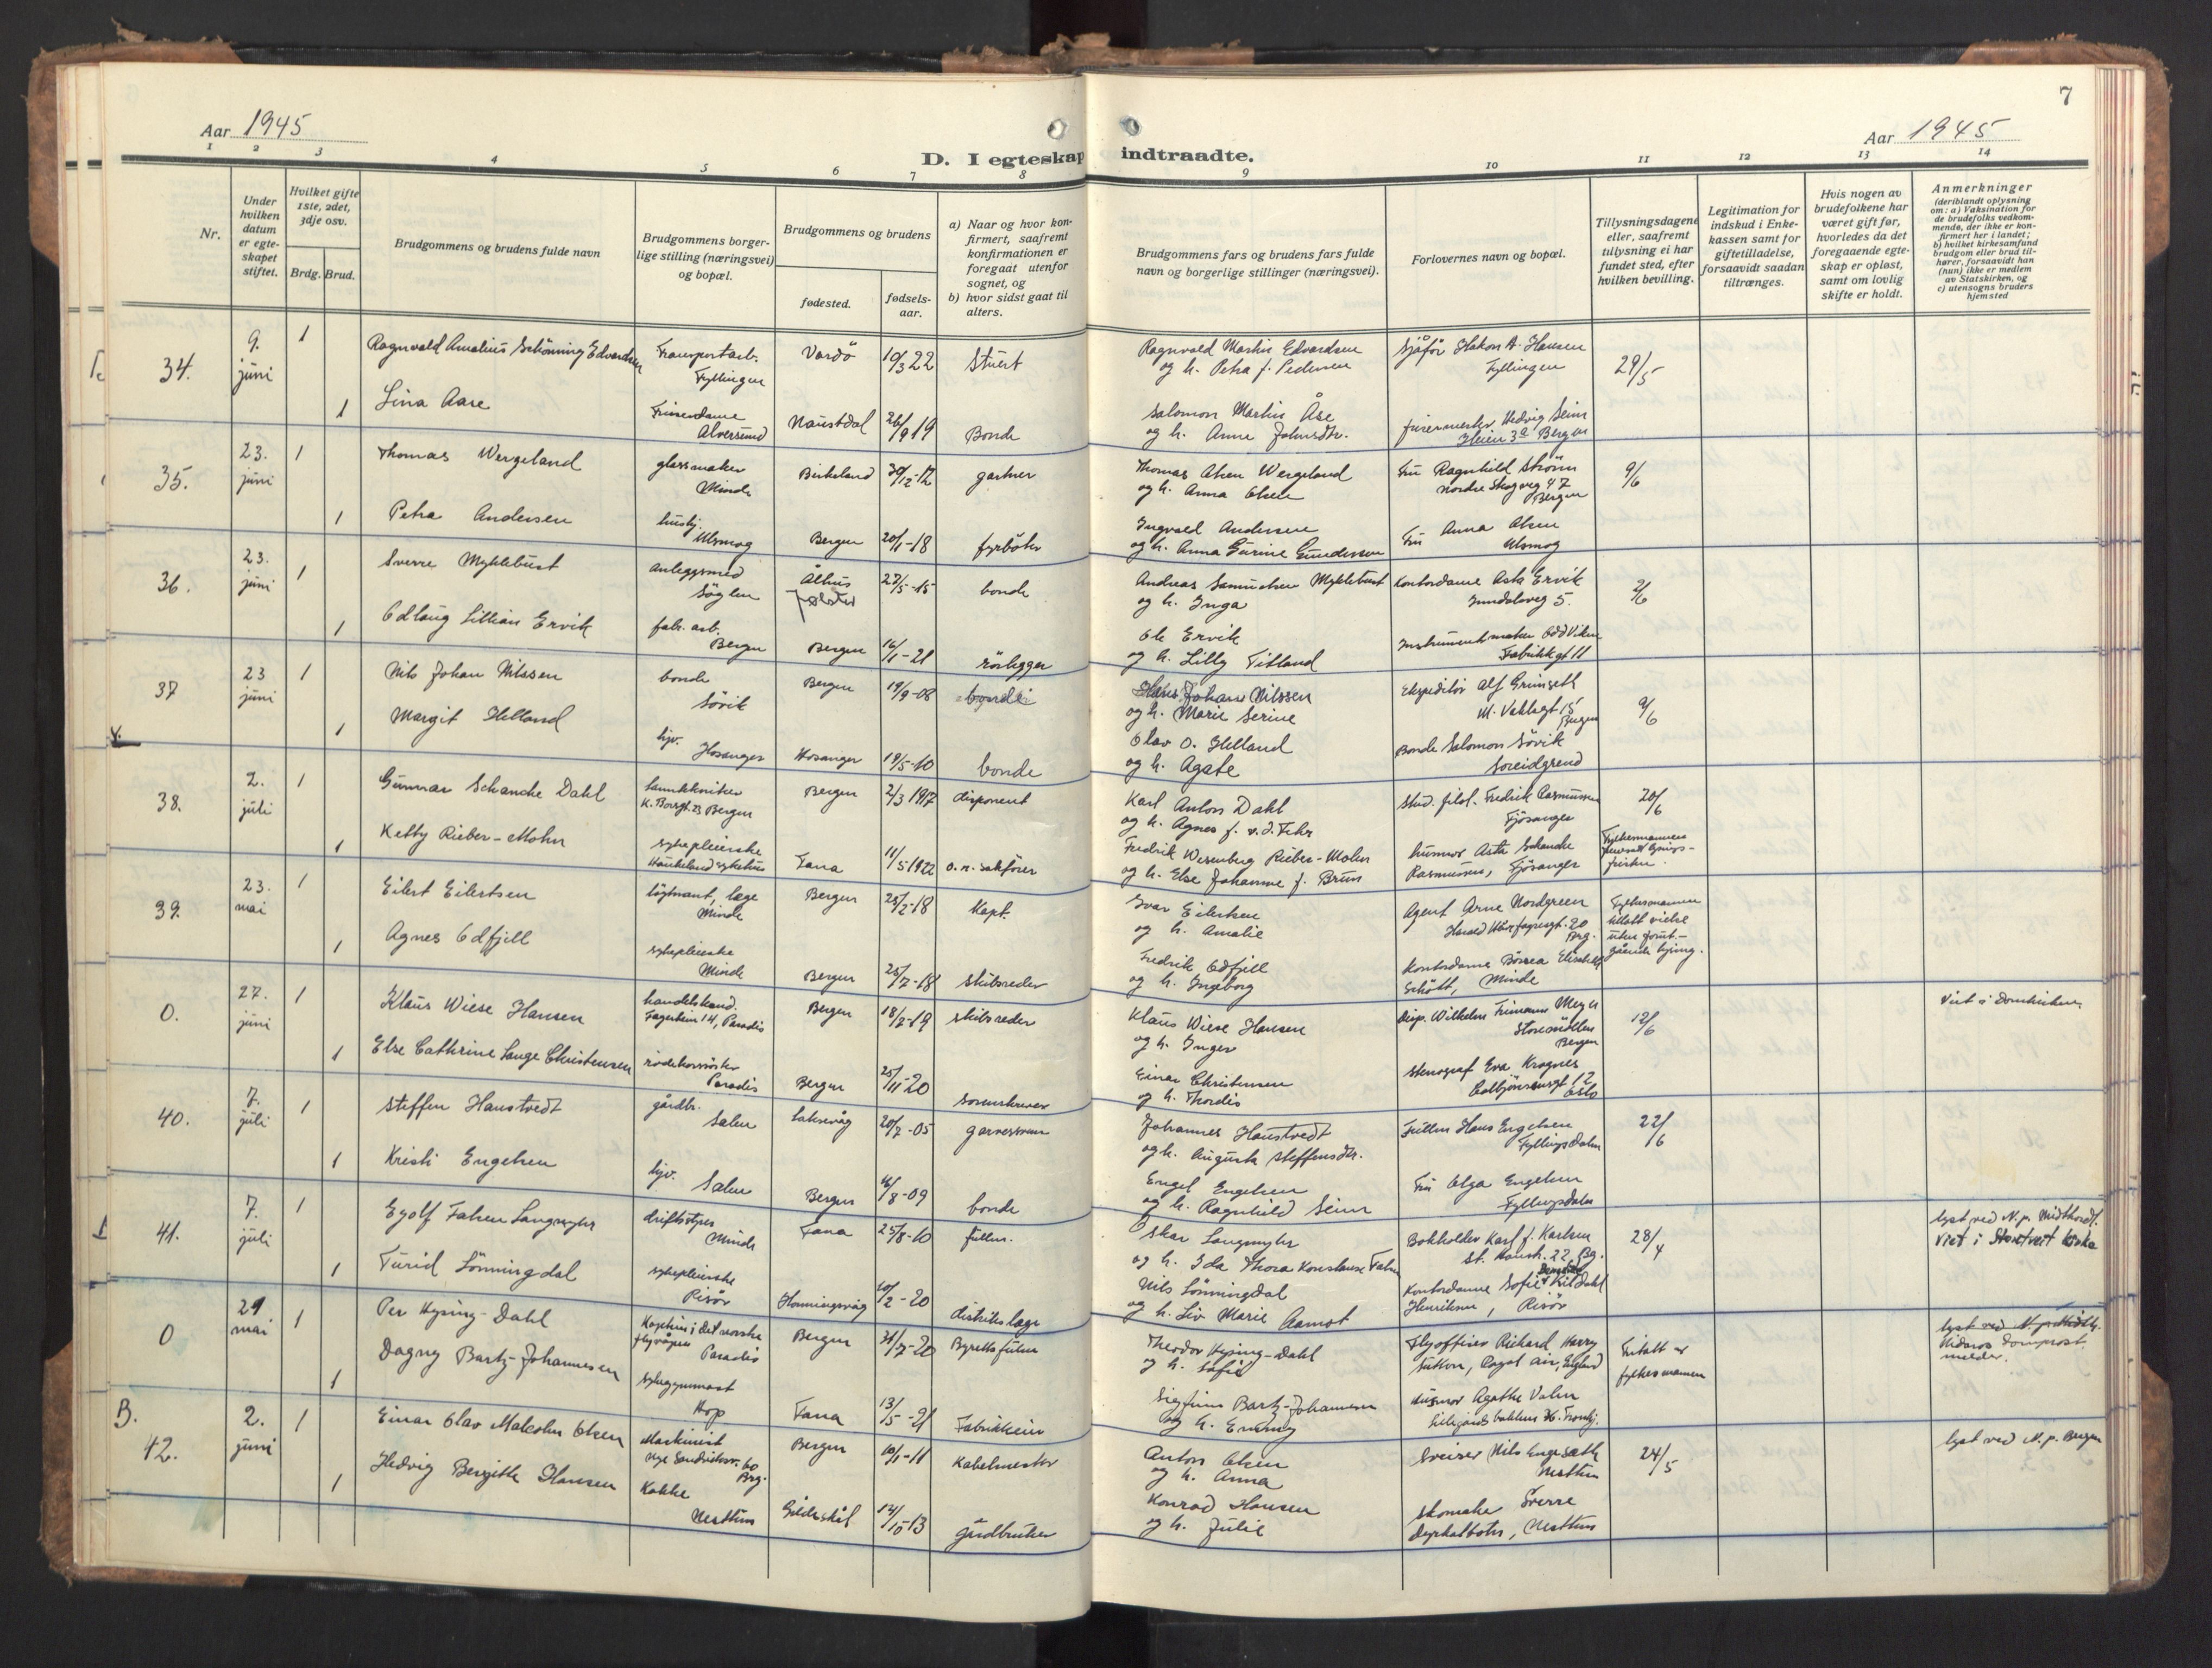 7
Aar 1945
Aar 1945
D. I egteskap indtraadte.
1 2 3 4 5 6 7 8 9 10 11 12 13 14
Nr.
Under hvilken datum er egteskapet stiftet.
Hvilket gifte 1ste, 2det, 3dje osv.
Brdg. Brud.
Brudgommens og brudens fulde navn
Brudgommens borgerlige stilling (næringsvei) og bopæl.
Brudgommens og brudens
fødested.
fødselsaar.
a) Naar og hvor konfirmert, saafremt konfirmationen er foregaat utenfor sognet, og
b) hvor sidst gaat til alters.
Brudgommens fars og brudens fars fulde navn og borgerlige stillinger (næringsvei).
Forlovernes navn og bopæl.
Tillysningsdagene eller, saafremt tillysning ei har fundet sted, efter hvilken bevilling.
Legitimation for indskud i Enkekassen samt for giftetilladelse, forsaavidt saadan tiltrænges.
Hvis nogen av brudefolkene har været gift før, hvorledes da det foregaaende egteskap er opløst, samt om lovlig skifte er holdt.
Anmerkninger
(deriblandt oplysning om: a) Vaksination for de brudefolks vedkommende, der ikke er konfirmert her i landet; b) hvilket kirkesamfund brudgom eller brud tilhører, forsaavidt han (hun) ikke er medlem av Statskirken, og c) utensogns bruders hjemsted
34. 9. juni 1 Ragnvald Amalius Schönning Edvardsen Transportarb. Fyllingen Vardö 10/3 22 Stuert Ragnvald Martin Edvardsen og h. Petra f. Pedersen Sjåför Hakon A. Hansen Fyllingen 29/5
1 Lina Aase Frisørdame Alversund Naustdal 26/9 19 Bonde Salomon Martin Åse og h. Anne Johnsdtr. frisermester Hedvig Seim Heien 3a Bergen
35. 23. juni 1 Thomas Wergeland glassmaker Minde Birkeland 30/12-12 gartner Thomas Olsen Wergeland og h. Anna Olsen Fru Ragnhild Ström Nordre Skogveg 47 Bergen 9/6
1 Petra Andersen husbj. Ulsmåg Bergen 20/1-18 fyrböter Ingvald Andersen og h. Anna Gurine Gundersen Fru Anna Olsen Ulsmåg
36. 23. juni 1 Sverre Myklebust anleggsmed Söglen Ålhus Jølster 27/5-15 bonde Andreas Samuelsen Myklebust og h. Inga Kontordame Asta Ervik 5. 2/6
1 Odlaug Lillian Ervik fab. arb. Bergen Bergen 16/1-21 rörlegger Ole Ervik og h. Lilly Titland Instrumentmaker Odd Viken Fabrikkgt 11
37 23 juni 1 Nils Johan Nilssen bonde Sörvik Bergen 19/9-08 bonde Hans Johan Nilssen og h. Marie Serine Ekspeditör Alf Grimseth 15 Bergen 9/6
1 Margit Helland hjv. Hosanger Hosanger 19/5-10 bonde Olav O. Helland og h. Agate Bonde Salomon Sörvik Soreidgrend
38. 2. juli 1 Gunnar Schanche Dahl tanntekniker K. Borgt. 23 Bergen Bergen 2/3 1917 disponent Karl Anton Dahl og h. Agnes f. v.d. Fehr Stud. filol. Fredrik Rasmussen Fjösanger 20/6
1 Ketty Rieber-Mohn sykepleierske Haukeland sykehus Fana 11/5 1922 o.r. sakförer Fredrik Wesenberg Rieber-Mohn og h. Else Johanne f. Brun husmor Asta Schanche Rasmussen, Fjösanger Fylkesmannen lysningsfristen.
39. 23. mai 1 Eilert Eilertsen löytnant, lege Minde Bergen 25/2-18 Kapt. Ivar Eilertsen og h. Amalie Agent Arne Nordgreen Harald Hårfagresgt. 20 Brg. Fylkesmannen tillatt vielse uten forutgående lysing.
1 Agnes Odfjell sykepleierske Minde Bergen 25/7-18 skibsreder Fredrik Odfjell og h. Ingeborg Kontordame Elisabeth Schött, Minde
0. 27. juni 1 Klaus Wiese Hansen handelskand. Fagerheim 14, Paradis Bergen 18/2-19 skibsreder Klaus Wiese Hansen og h. Inger disp. Wilhelm Frimann Meyer Storemöllen Bergen 12/6 Viet i Domkirken
1 Else Cathrine Lange Christensen rödekorssöster Paradis Bergen 25/11-20 sorenskriver Einar Christensen og h. Thordis stenograf Eva Kragnes Colbjörnsensgt 12 Oslo
40. 7. juli 1 Steffen Haustvedt gårdbr. Sælen Laksevåg 20/7-05 Johannes Haustvedt og h. Augusta Steffensdtr. Fullm. Hans Engelsen Fyllingsdalen 22/6
1 Kristi Engelsen hjv. Sælen Bergen /8-09 bonde Engel Engelsen og h. Ragnhild Seim Fru Olga Engelsen Fyllingsdalen
41. 7. juli 1 Eyolf Falsen Langmyhr driftsstyrer Minde Fana 25/8-10 fullm. Oskar Langmyhr og h. Ida Thora Konstanse Falsen Bokholder Karl J. Karlsen St. Hansh. 22, Brg. 28/4 lyst ved N.p. Midthordl. Viet i Storetveit kirke
1 Turid Lönningdal sykepleierske Risör Honningsvåg 10/2-20 distriktslege Nils Lönningdal og h. Liv Marie Aamot Kontordame Sofie Kildahl Henriksen, Risör
0 29 mai 1 Per Hysing-Dahl Kaptein i det norske flyvåpen Paradis Bergen 31/7-20 Byrettsfullm Theodor Hysing-Dahl og h. Sofie Flyoffiser Richard Harry Sutton, Royal air, England Fritatt av fylkesmannen lyst ved N.p. Midth. Nidaros domprost. melder.
1 Dagny Bartz-Johannesen sykegymnast Hop Fana 13/5-21 Fabrikkeier Sigfinn Bartz-Johannesen og h. Emmy Husmor Agathe Valen
B. 42. 2. juni 1 Einar Olav Malcolm Olsen Maskinist 60 Brg. Bergen 10/1-11 Kabelmester Anton Olsen og h. Anna Sveiser Nils Engesæth Nesttun 24/5 lyst ved N.p. Bergen
1 Hedvig Bergithe Hansen Kokke Nesttun Gildeskål 12/10-13 gårdbruker Konrad Hansen og h. Julie skomaker Sverre Dyrkolbotn, Nesttun